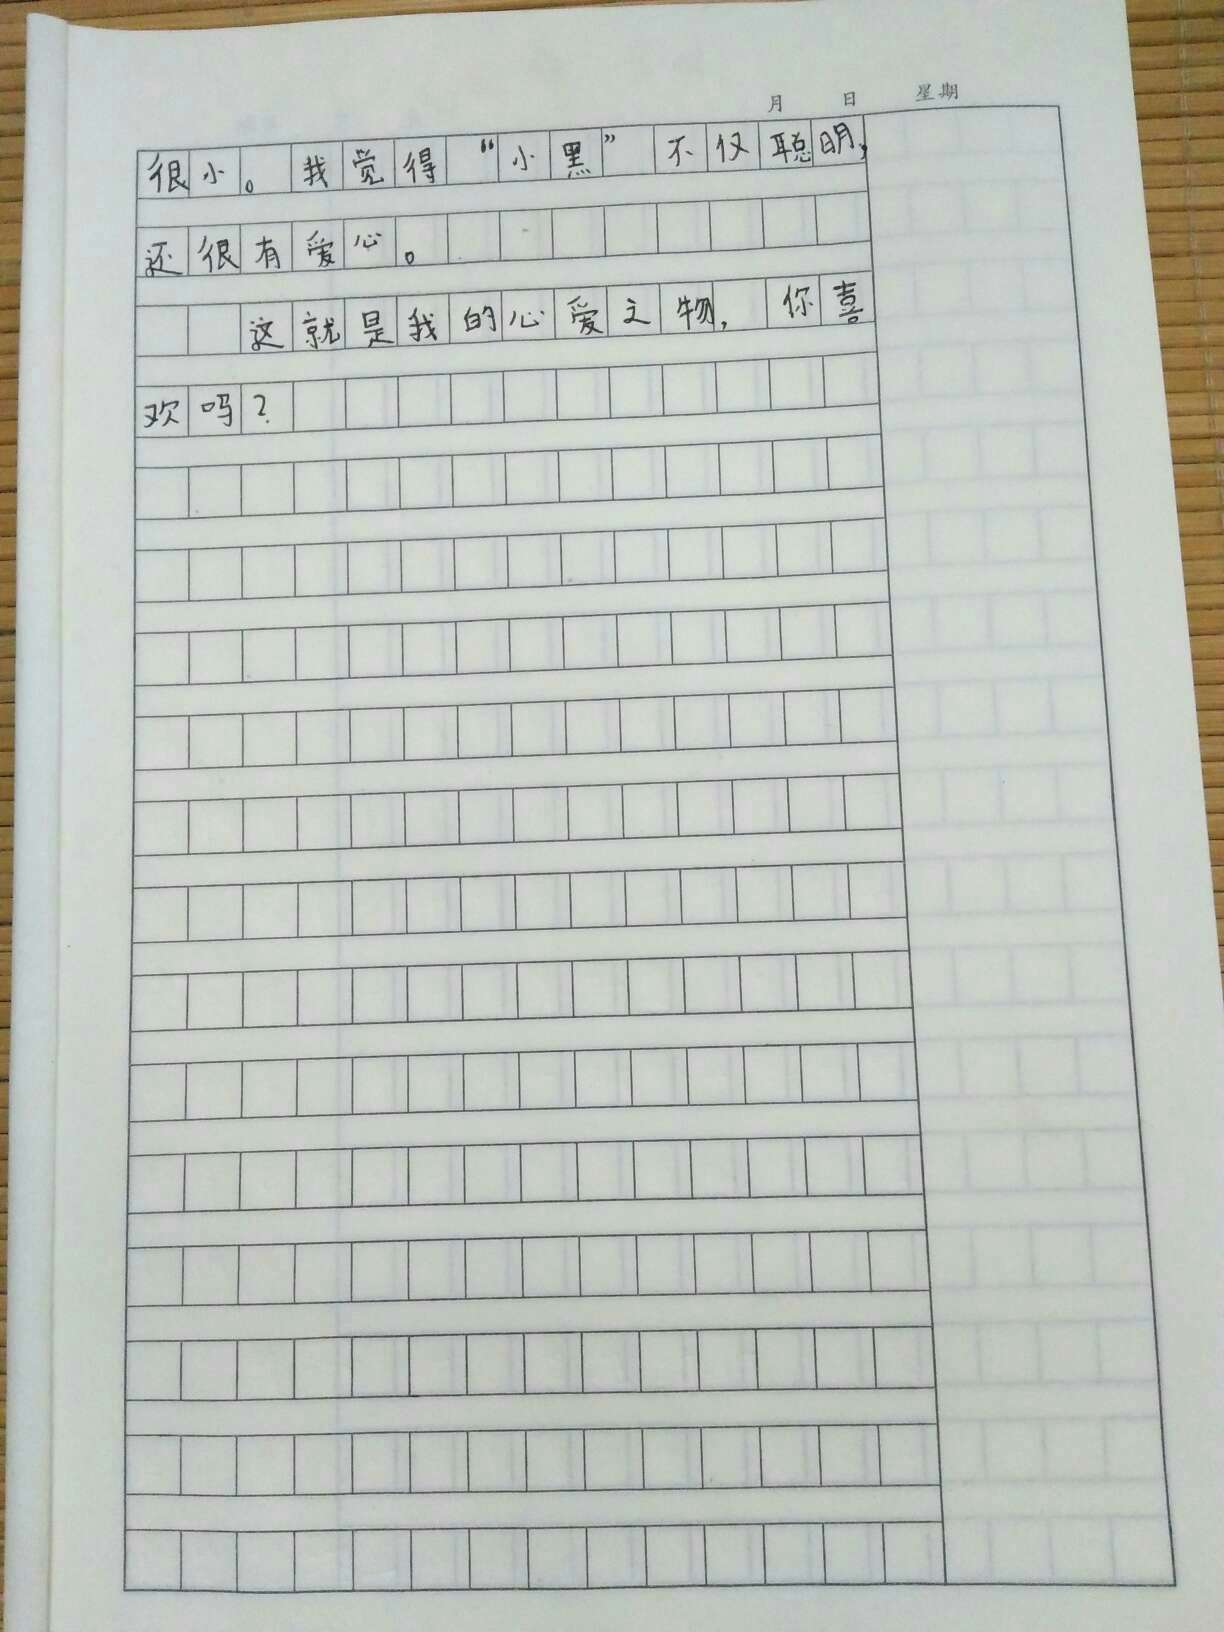 月 日 星期
很小。我觉得“小黑”不仅聪明,
还很有爱心。
这就是我的心爱之物,你喜
欢吗?